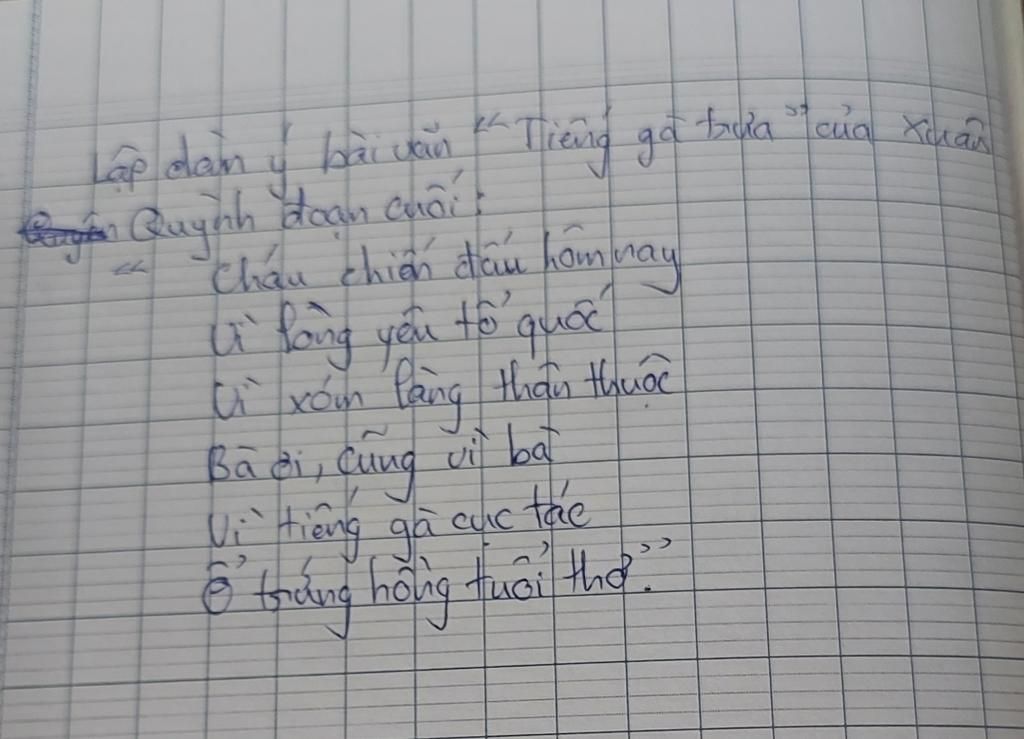 Lập dàn ý bài văn "Tiếng gà trưa" của Xuân
Quỳnh đoạn cuối:
" Cháu chiến đấu hôm nay
Vì lòng yêu tổ quốc
Vì xóm làng thân thuộc
Bà ơi, cũng vì bà
Vì tiếng gà cục tác
Ổ trứng hồng tuổi thơ."